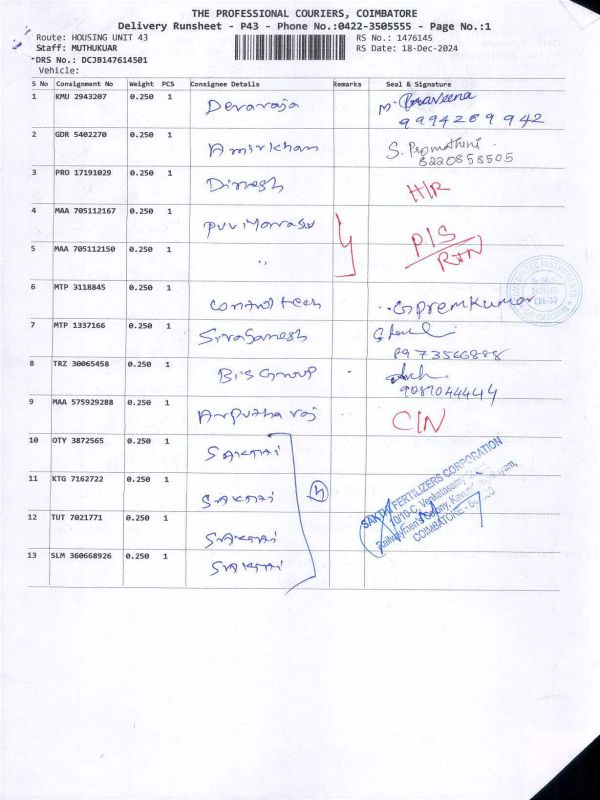 THE PROFESSIONAL COURIERS, COIMBATORE
Delivery Runsheet - P43 - Phone No.:0422-3505555 - Page No.:1
Route: HOUSING UNIT 43 RS No.: 1476145
Staff: MUTHUKUAR RS Date: 18-Dec-2024
*DRS No.: DCJB147614501
Vehicle:
S No Consignment No Weight PCS Consignee Details Remarks Seal & Signature
1 KMU 2943207 0.250 1 Devaraja M. Praveena
9994289942
2 GDR 5402270 0.250 1 Amirkhan S.
8220858505
3 PRO 17191029 0.250 1 Dinesh H/R
4 MAA 705112167 0.250 1 Puviyarasu P/S
5 MAA 705112150 0.250 1 " RTN
6 MTP 3118845 0.250 1 Control tech G.premkumar
7 MTP 1337166 0.250 1 Sivaganesh
8973566888
8 TRZ 30065458 0.250 1 BIS Group
9087044444
9 MAA 575929288 0.250 1 Arputha raj C/N
10 OTY 3872565 0.250 1 SAKTHI
11 KTG 7162722 0.250 1 SAKTHI
12 TUT 7021771 0.250 1 SAKTHI
13 SLM 360668926 0.250 1 SAKTHI
SAKTHI FERTILIZERS CORPORATION
10/10-C, Venkatasamy
Railwaymen's Colony,
COIMBATORE -